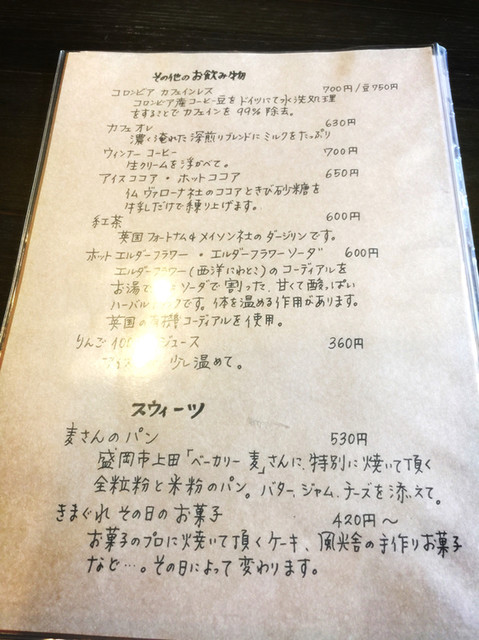 その他のお飲み物
コロンビア カフェインレス 700円/豆750円
コロンビア産コーヒー豆をドイツにて水洗処理
をすることでカフェインを99%除去。
カフェオレ 630円
濃く淹れた深煎りブレンドにミルクをたっぷり
ウィンナーコーヒー 700円
生クリームを浮かべて。
アイスココア・ホットココア 650円
仏ヴァローナ社のココアときび砂糖を
牛乳だけで練り上げます。
紅茶 600円
英国フォートナム&メイソン社のダージリンです。
ホットエルダーフラワー・エルダーフラワーソーダ 600円
エルダーフラワー(西洋にわとこ)のコーディアルを
お湯で ソーダで割った、甘くて酸っぱい
ハーバル ックです。体を温める作用があります。
英国の 機コーディアルを使用。
りんご 100 ジュース 360円
少し温めて。
スウィーツ
麦さんのパン 530円
盛岡市上田「ベーカリー麦」さんに、特別に焼いて頂く
全粒粉と米粉のパン。バター、ジャム、チーズを添えて。
きまぐれ その日のお菓子 420円〜
お菓子のプロに焼いて頂くケーキ、風光舎の手作りお菓子
など…。その日によって変わります。